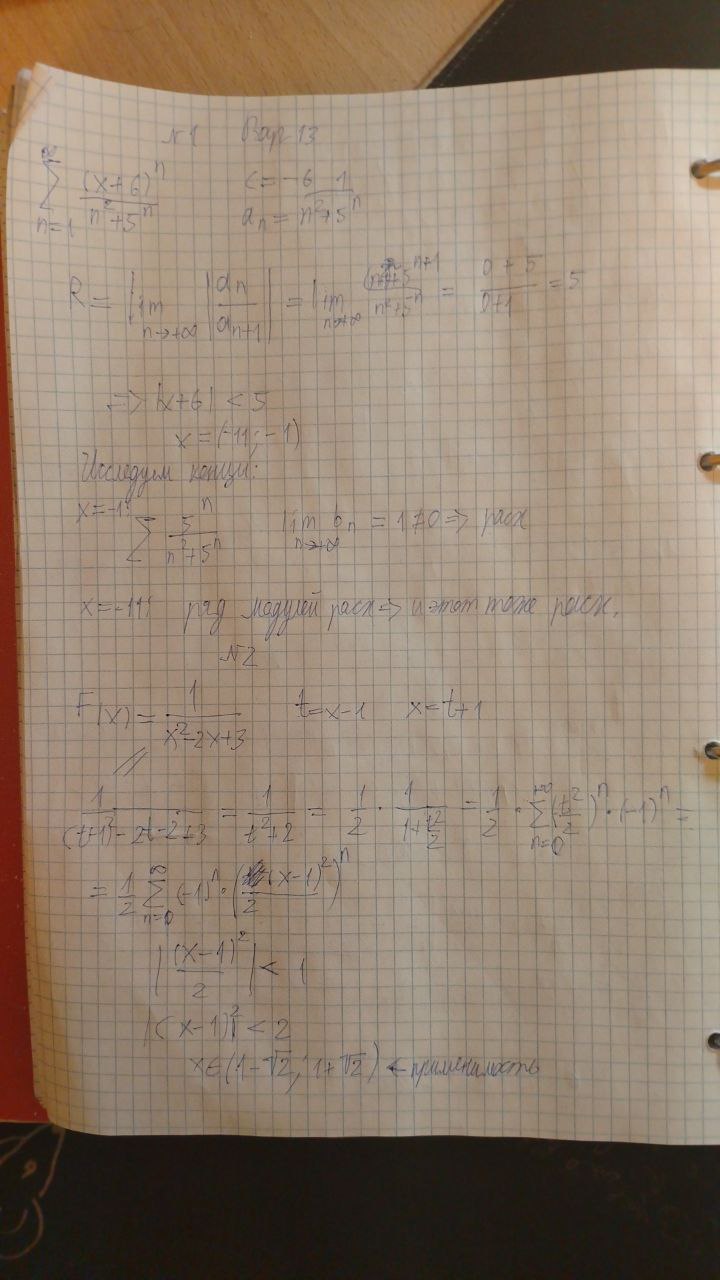 №1 Вар 13
∑_{n=1}^{∞} (x+6)^n / (n²+5^n)   c = -6   a_n = 1 / (n²+5^n)
R = lim_{n→+∞} |a_n / a_{n+1}| = lim_{n→+∞} ((n+1)²+5^{n+1}) / (n²+5^n) = (0+5) / (0+1) = 5
=> |x+6| < 5
x = (-11; -1)
Исследуем концы:
x=-1: ∑ 5^n / (n²+5^n)   lim_{n→+∞} b_n = 1 ≠ 0 => расх
x=-11: ряд модулей расх => и этот тоже расх.
№2
F(x) = 1 / (x²-2x+3)   t = x-1   x = t+1
1 / ((t+1)²-2t-2+3) = 1 / (t²+2) = 1/2 · 1 / (1+t²/2) = 1/2 · ∑_{n=0}^{+∞} (t²/2)^n · (-1)^n =
= 1/2 ∑_{n=0}^{∞} (-1)^n · ((x-1)²/2)^n
|(x-1)²/2| < 1
|(x-1)²| < 2
x ∈ (1-√2; 1+√2) ← применимость